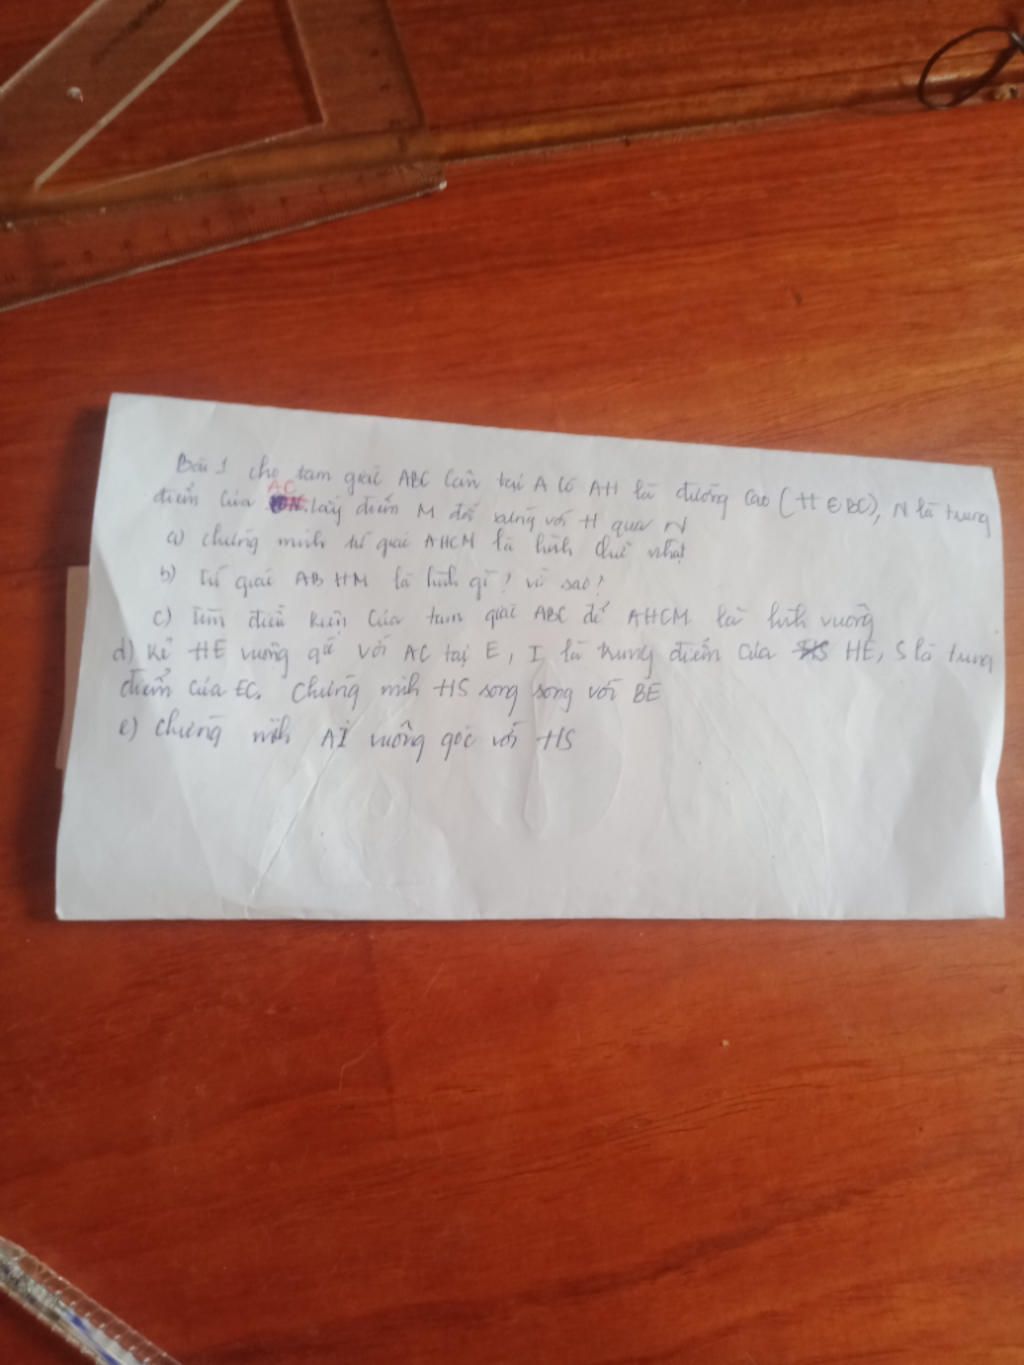 Bài 1 cho tam giác ABC cân tại A có AH là đường cao (H ∈ BC), N là trung
điểm của AC. lấy điểm M đối xứng với H qua N
a) chứng minh tứ giác AHCM là hình chữ nhật
b) Tứ giác ABHM là hình gì? vì sao?
c) Tìm điều kiện của tam giác ABC để AHCM là hình vuông
d) Kẻ HE vuông góc với AC tại E, I là trung điểm của HE, S là trung
điểm của EC. Chứng minh HS song song với BE
e) Chứng minh AI vuông góc với HS